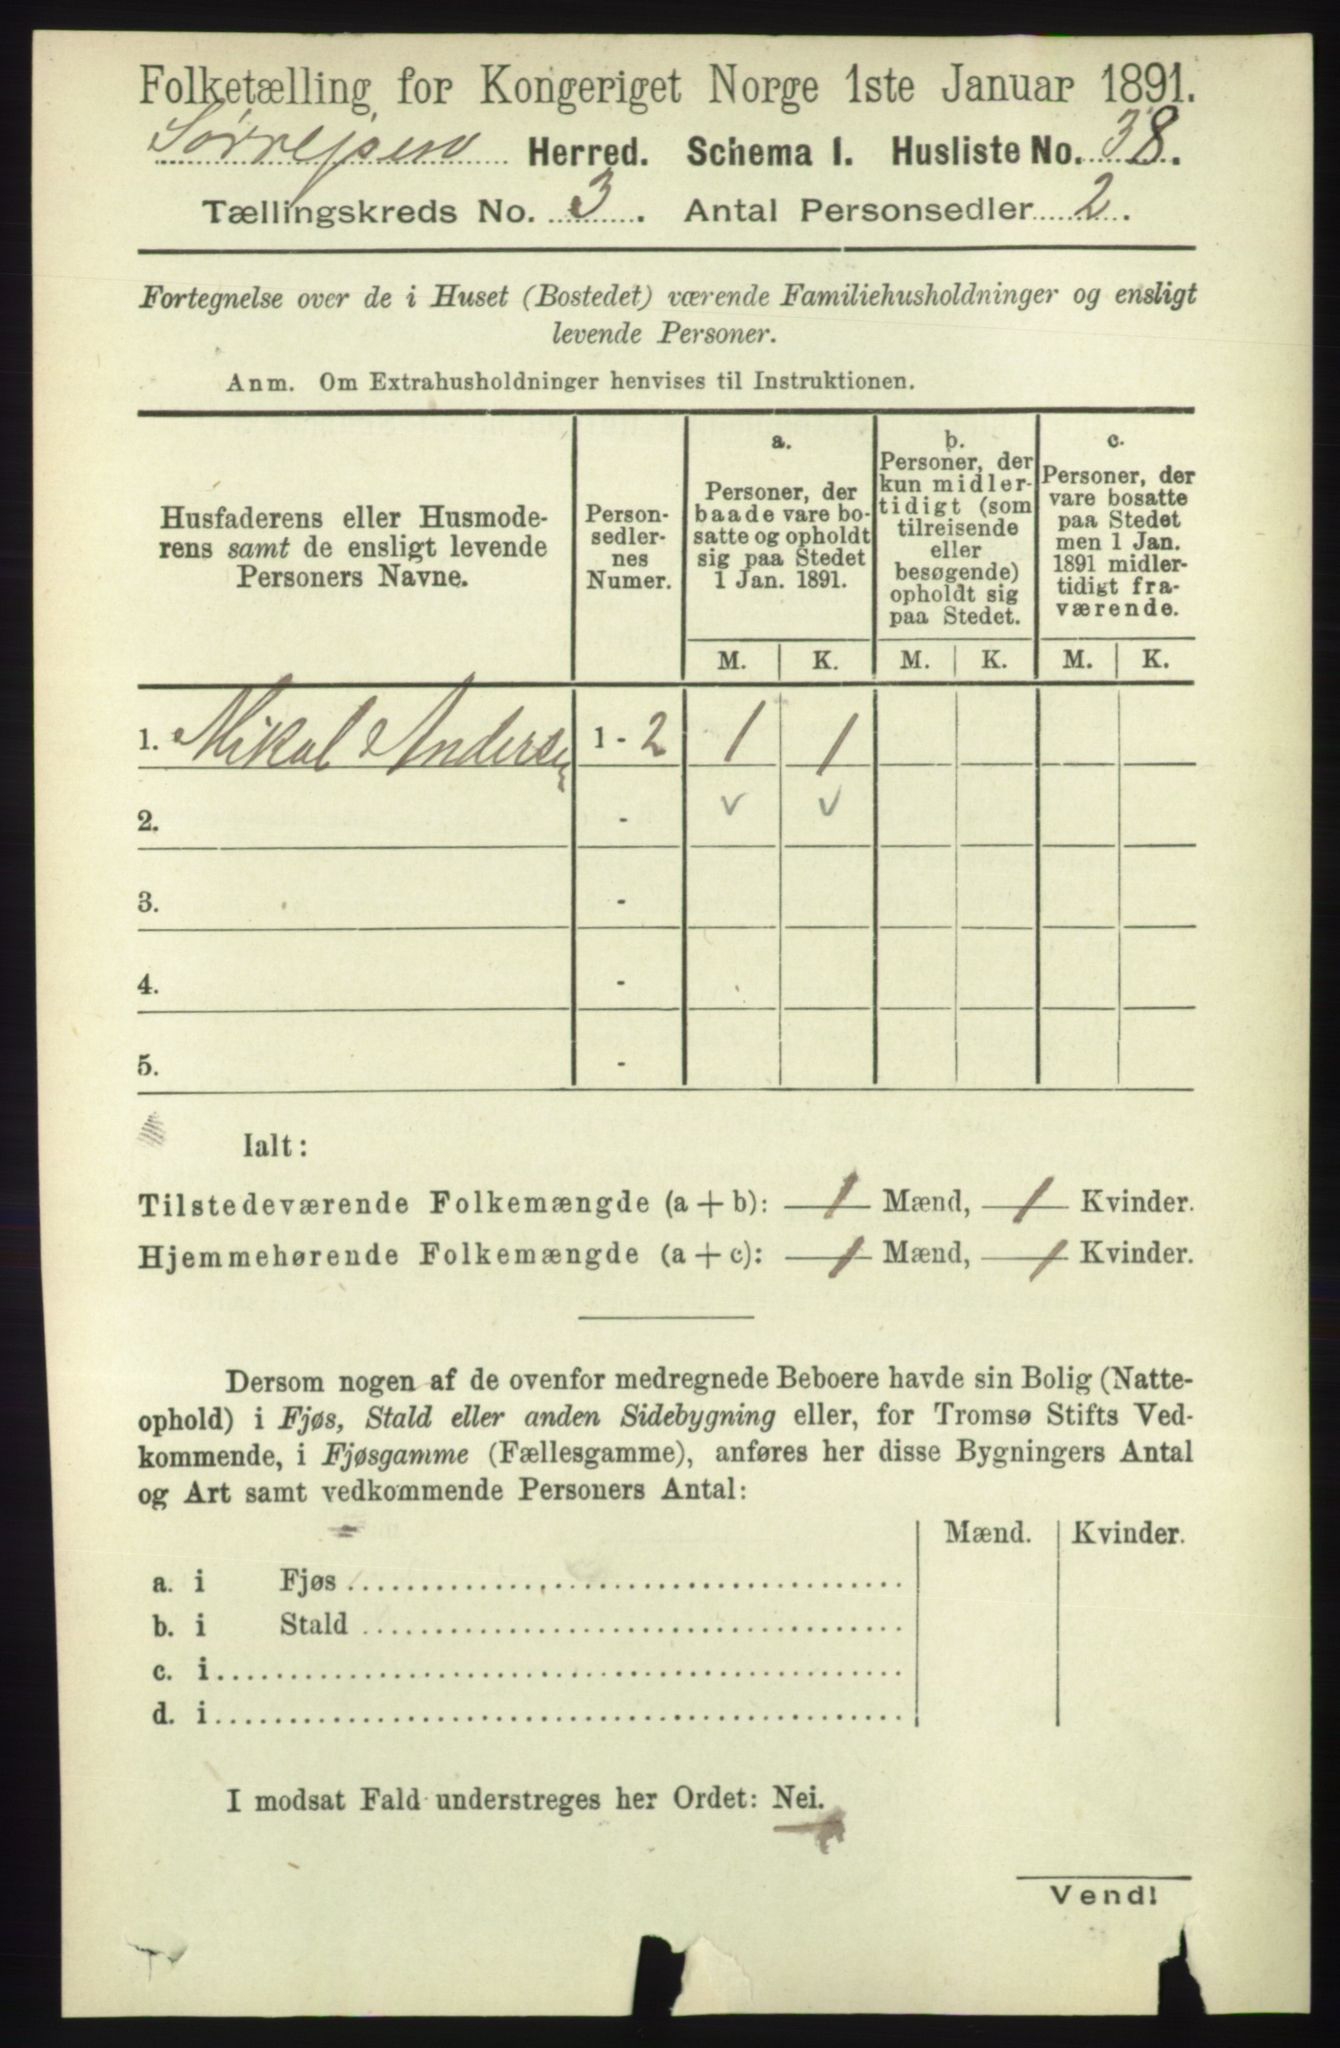 Folketælling for Kongeriget Norge 1ste Januar 1891.
Sørrejsen Herred. Schema I. Husliste No. 38.
Tællingskreds No. 3. Antal Personsedler 2.
Fortegnelse over de i Huset (Bostedet) værende Familiehusholdninger og ensligt
levende Personer.
Anm. Om Extrahusholdninger henvises til Instruktionen.
Husfaderens eller Husmode-
rens samt de ensligt levende
Personers Navne.
Person-
sedler-
nes
Numer.
a.
Personer, der
baade vare bo-
satte og opholdt
sig paa Stedet
1 Jan. 1891.
b.
Personer, der
kun midler-
tidigt (som
tilreisende
eller
besøgende)
opholdt sig
paa Stedet.
c.
Personer, der
vare bosatte
paa Stedet
men 1 Jan.
1891 midler-
tidigt fra-
værende.
M. K. M. K. M. K.
1. Mikal Andersen 1 - 2 1 1
2. - v v
3. -
4. -
5. -
Ialt:
Tilstedeværende Folkemængde (a + b): 1 Mænd, 1 Kvinder.
Hjemmehørende Folkemængde (a + c): 1 Mænd, 1 Kvinder.
Dersom nogen af de ovenfor medregnede Beboere havde sin Bolig (Natte-
ophold) i Fjøs, Stald eller anden Sidebygning eller, for Tromsø Stifts Ved-
kommende, i Fjøsgamme (Fællesgamme), anføres her disse Bygningers Antal
og Art samt vedkommende Personers Antal:
Mænd. Kvinder.
a. i Fjøs
b. i Stald
c. i
d. i
I modsat Fald understreges her Ordet: Nei.
Vend!